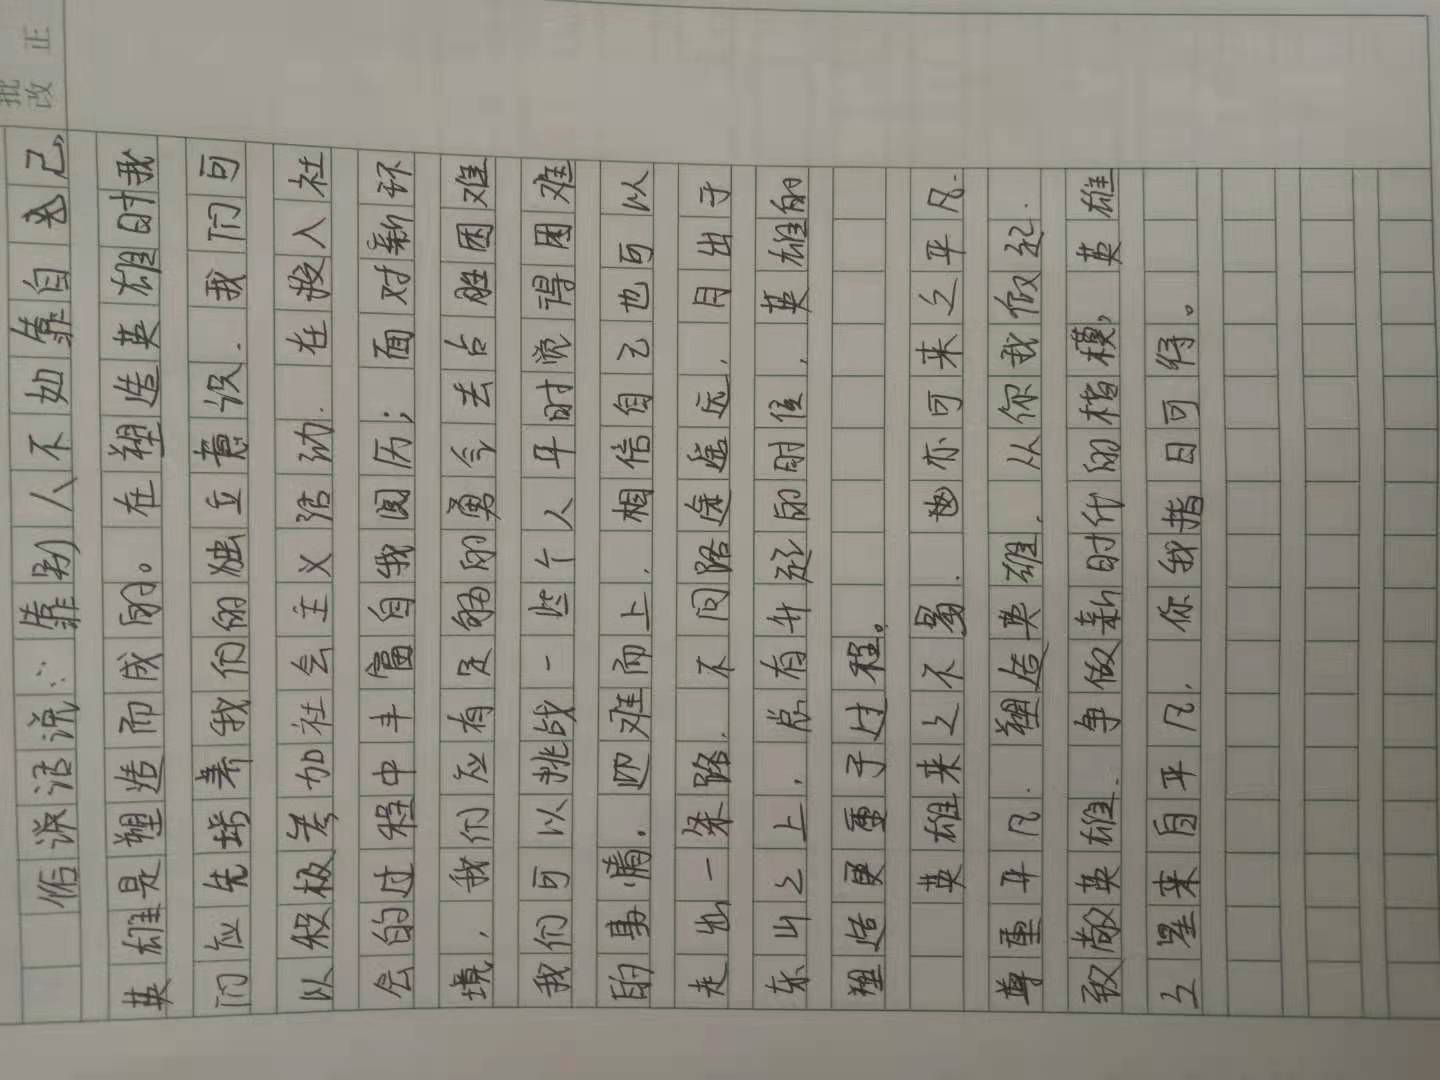 批改 正
俗谚话说:“靠别人不如靠自己”
英雄是塑造而成的。在塑造英雄时我
们应先培养我们的独立意识.我们可
以积极参加社会主义活动.在投入社
会的过程中丰富自我阅历;面对新环
境,我们应有足够的勇气去占胜困难
我们可以挑战一些个人平时觉得困难
的事情.迎难而上,相信自己也可以
走出一条路.不问路途遥远,月出于
东山之上,总有升起的时候,英雄的
塑造更重于过程。
英雄来之不易.也亦可来之平凡.
尊重平凡.塑造英雄,从你我做起.
致敬英雄.争做新时代的楷模,英雄
之望来自平凡,你我指日可待。